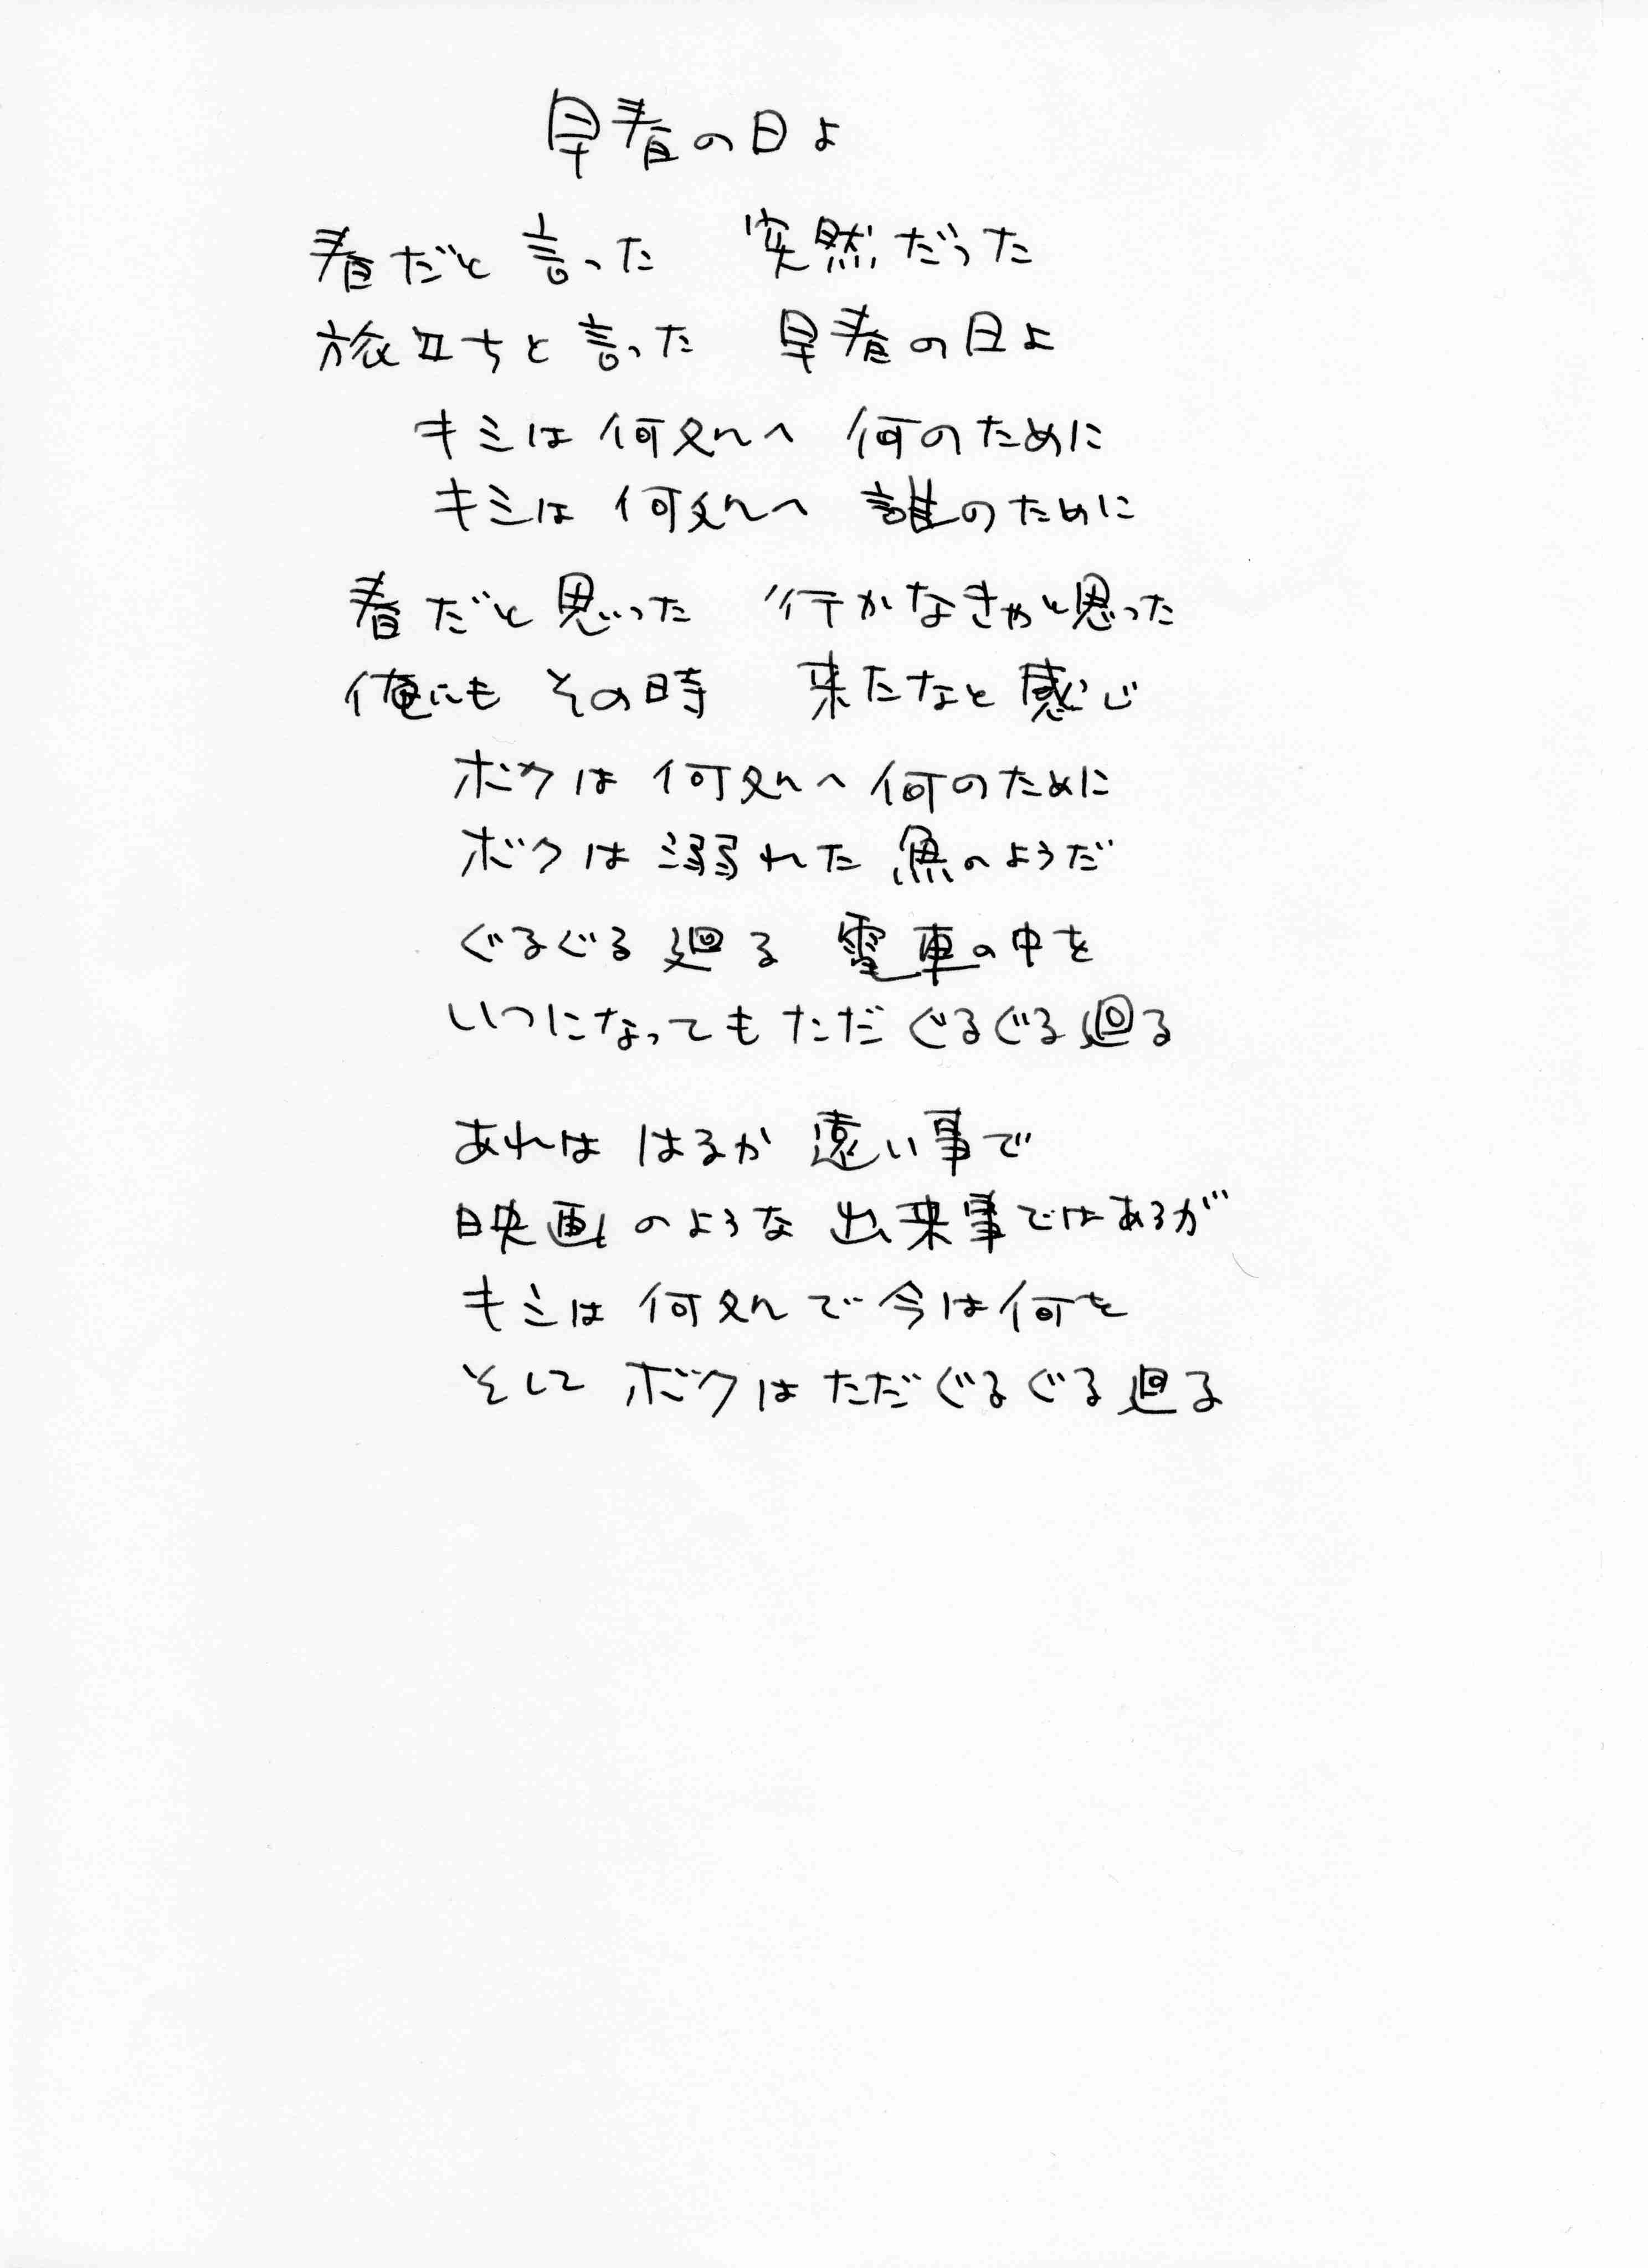 早春の日よ
春だと言った 突然だった
旅立ちと言った 早春の日よ
キミは何処へ 何のために
キミは何処へ 誰のために
春だと思った 行かなきゃと思った
俺にも その時 来たなと感じ
ボクは 何処へ 何のために
ボクは 溺れた 魚のようだ
ぐるぐる 廻る 電車の中を
いつになっても ただ ぐるぐる廻る
あれは はるか 遠い事で
映画のような 出来事ではあるが
キミは 何処で 今は何を
そして ボクは ただ ぐるぐる 廻る